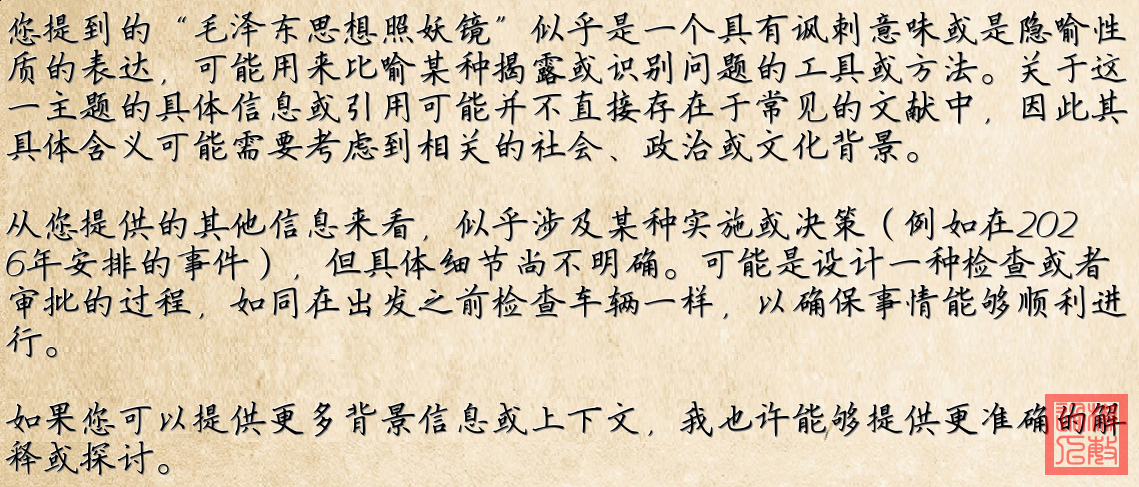 您提到的“毛泽东思想照妖镜”似乎是一个具有讽刺意味或是隐喻性
质的表达，可能用来比喻某种揭露或识别问题的工具或方法。关于这
一主题的具体信息或引用可能并不直接存在于常见的文献中，因此其
具体含义可能需要考虑到相关的社会、政治或文化背景。
从您提供的其他信息来看，似乎涉及某种实施或决策（例如在202
6年安排的事件），但具体细节尚不明确。可能是设计一种检查或者
审批的过程，如同在出发之前检查车辆一样，以确保事情能够顺利进
行。
如果您可以提供更多背景信息或上下文，我也许能够提供更准确的解
释或探讨。